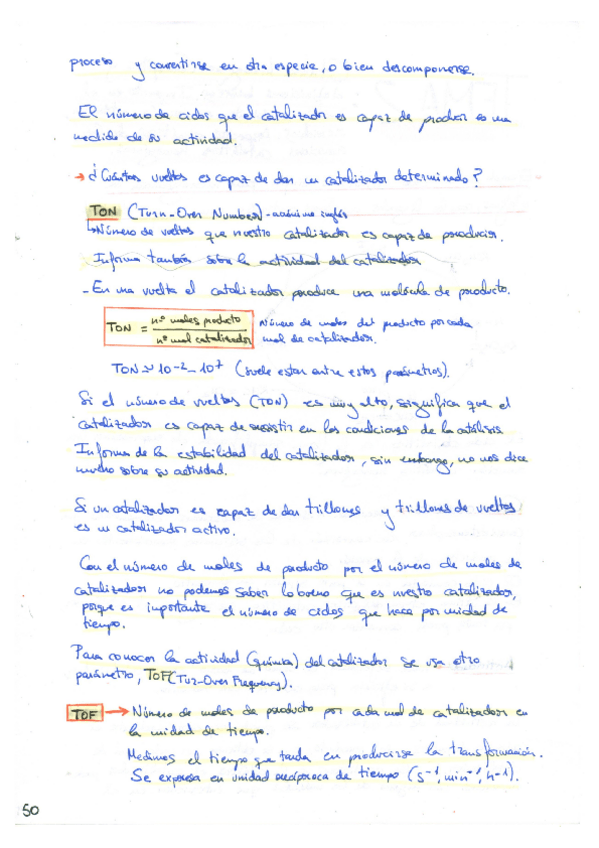 proceso y convertirse en otra especie, o bien descomponerse.
El número de ciclos que el catalizador es capaz de producir es una
medida de su actividad.
→ ¿Cuántas vueltas es capaz de dar un catalizador determinado?
TON (Turn-Over Number) - acrónimo inglés
Número de vueltas que nuestro catalizador es capaz de producir.
Informa también sobre la actividad del catalizador
- En una vuelta el catalizador produce una molécula de producto.
TON = nº moles producto / nº mol catalizador
Número de moles del producto por cada
mol de catalizador.
TON ~ 10-2 - 10 7 (suele estar entre estos parámetros).
Si el número de vueltas (TON) es muy alto, significa que el
catalizador es capaz de resistir en las condiciones de la catálisis
Informa de la estabilidad del catalizador, sin embargo, no nos dice
mucho sobre su actividad.
Si un catalizador es capaz de dar trillones y trillones de vueltas
es un catalizador activo.
Con el número de moles de producto por el número de moles de
catalizador no podemos saber lo bueno que es nuestro catalizador,
porque es importante el número de ciclos que hace por unidad de
tiempo.
Para conocer la actividad (química) del catalizador se usa otro
parámetro, TOF (Tur-Over Frequency).
TOF → Número de moles de producto por cada mol de catalizador en
la unidad de tiempo.
Medimos el tiempo que tarda en producirse la transformación.
Se expresa en unidad recíproca de tiempo (s-1, min-1, h-1).
50